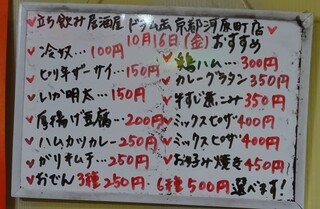 立ち飲み居酒屋 ドラム缶 京都河原町店
10月16日(金)おすすめ
冷奴…100円
ピリ辛ザーサイ…150円
いか明太…150円
厚揚げ豆腐…200円
ハムカツカレー…250円
ガリキムチ…250円
鶏ハム…300円
カレーグラタン350円
牛すじ煮こみ350円
ミックスピザ400円
ミックスピザ400円
お好み焼き450円
おでん3種250円・6種500円選べます!